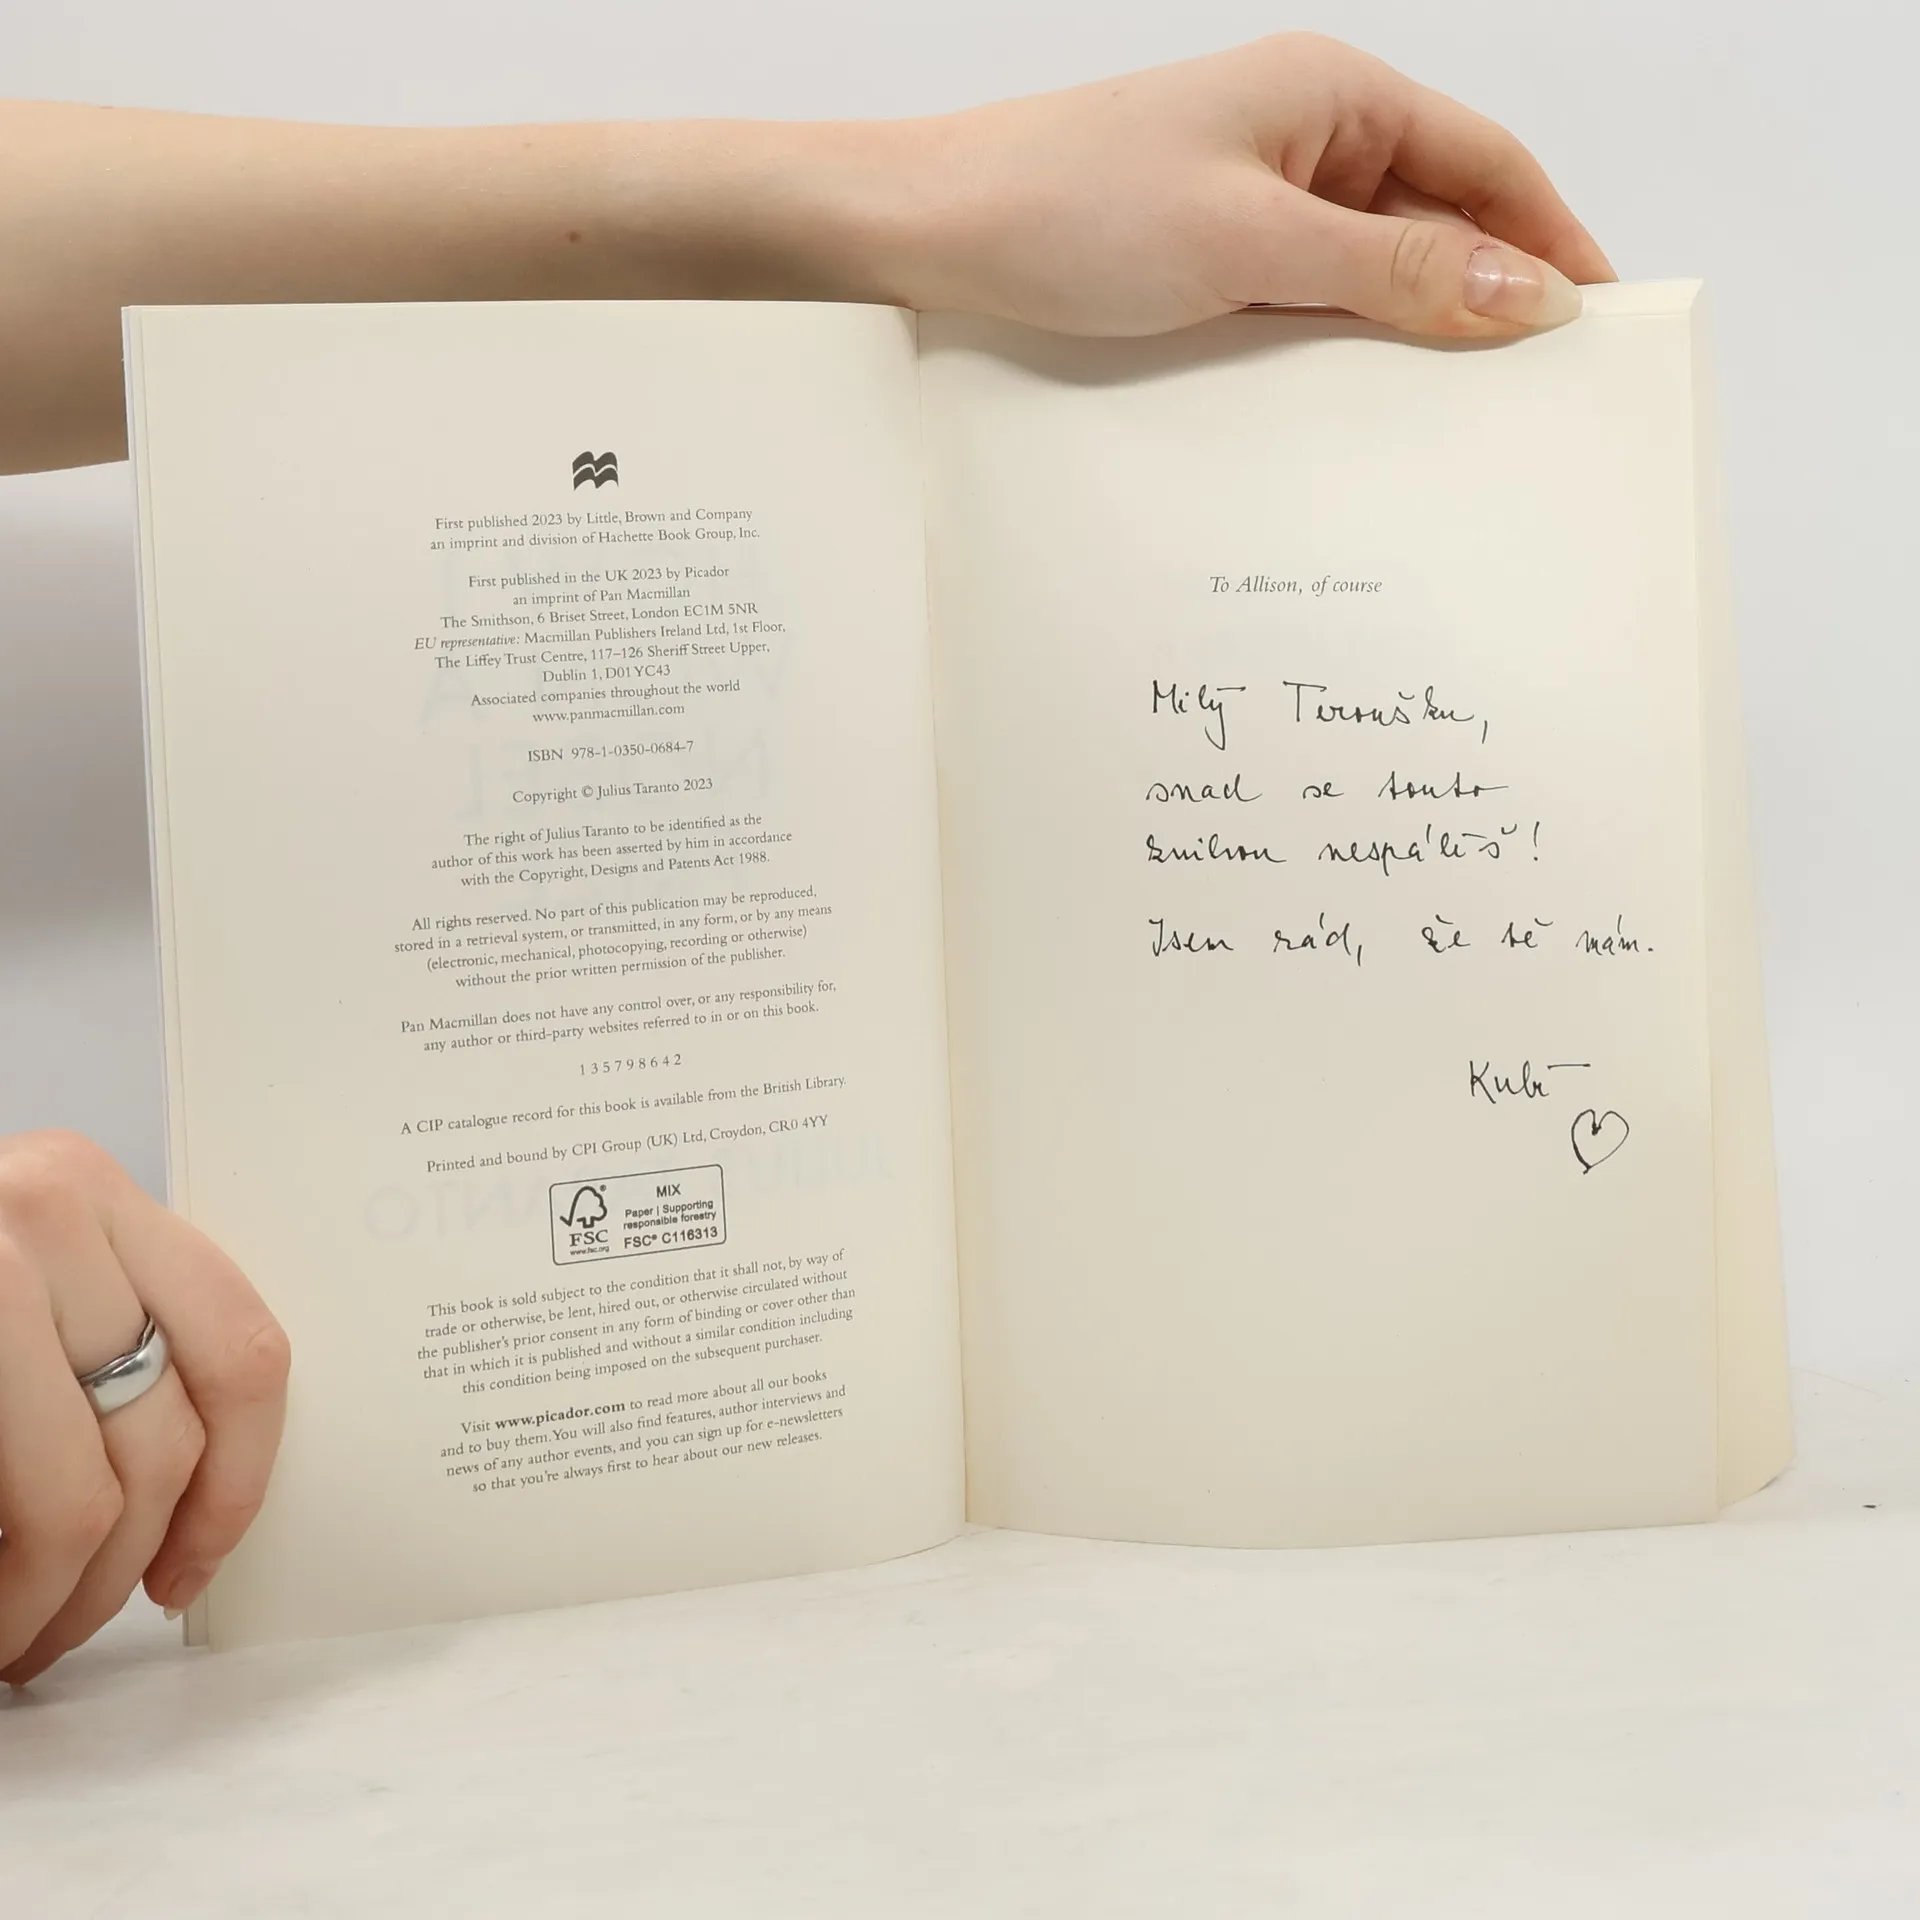 First published 2023 by Little, Brown and Company
an imprint and division of Hachette Book Group, Inc.
First published in the UK 2023 by Picador
an imprint of Pan Macmillan
The Smithson, 6 Briset Street, London EC1M 5NR
EU representative: Macmillan Publishers Ireland Ltd, 1st Floor,
The Liffey Trust Centre, 117–126 Sheriff Street Upper,
Dublin 1, D01 YC43
Associated companies throughout the world
www.panmacmillan.com
ISBN 978-1-0350-0684-7
Copyright © Julius Taranto 2023
The right of Julius Taranto to be identified as the
author of this work has been asserted by him in accordance
with the Copyright, Designs and Patents Act 1988.
All rights reserved. No part of this publication may be reproduced,
stored in a retrieval system, or transmitted, in any form, or by any means
(electronic, mechanical, photocopying, recording or otherwise)
without the prior written permission of the publisher.
Pan Macmillan does not have any control over, or any responsibility for,
any author or third-party websites referred to in or on this book.
1 3 5 7 9 8 6 4 2
A CIP catalogue record for this book is available from the British Library.
Printed and bound by CPI Group (UK) Ltd, Croydon, CR0 4YY
FSC
www.fsc.org
MIX
Paper | Supporting
responsible forestry
FSC® C116313
This book is sold subject to the condition that it shall not, by way of
trade or otherwise, be lent, hired out, or otherwise circulated without
the publisher's prior consent in any form of binding or cover other than
that in which it is published and without a similar condition including
this condition being imposed on the subsequent purchaser.
Visit www.picador.com to read more about all our books
and to buy them. You will also find features, author interviews and
news of any author events, and you can sign up for e-newsletters
so that you're always first to hear about our new releases.
To Allison, of course
Milý Teroušku,
snad se touto
knihou nespálíš!
Jsem rád, že tě mám.
Kuba